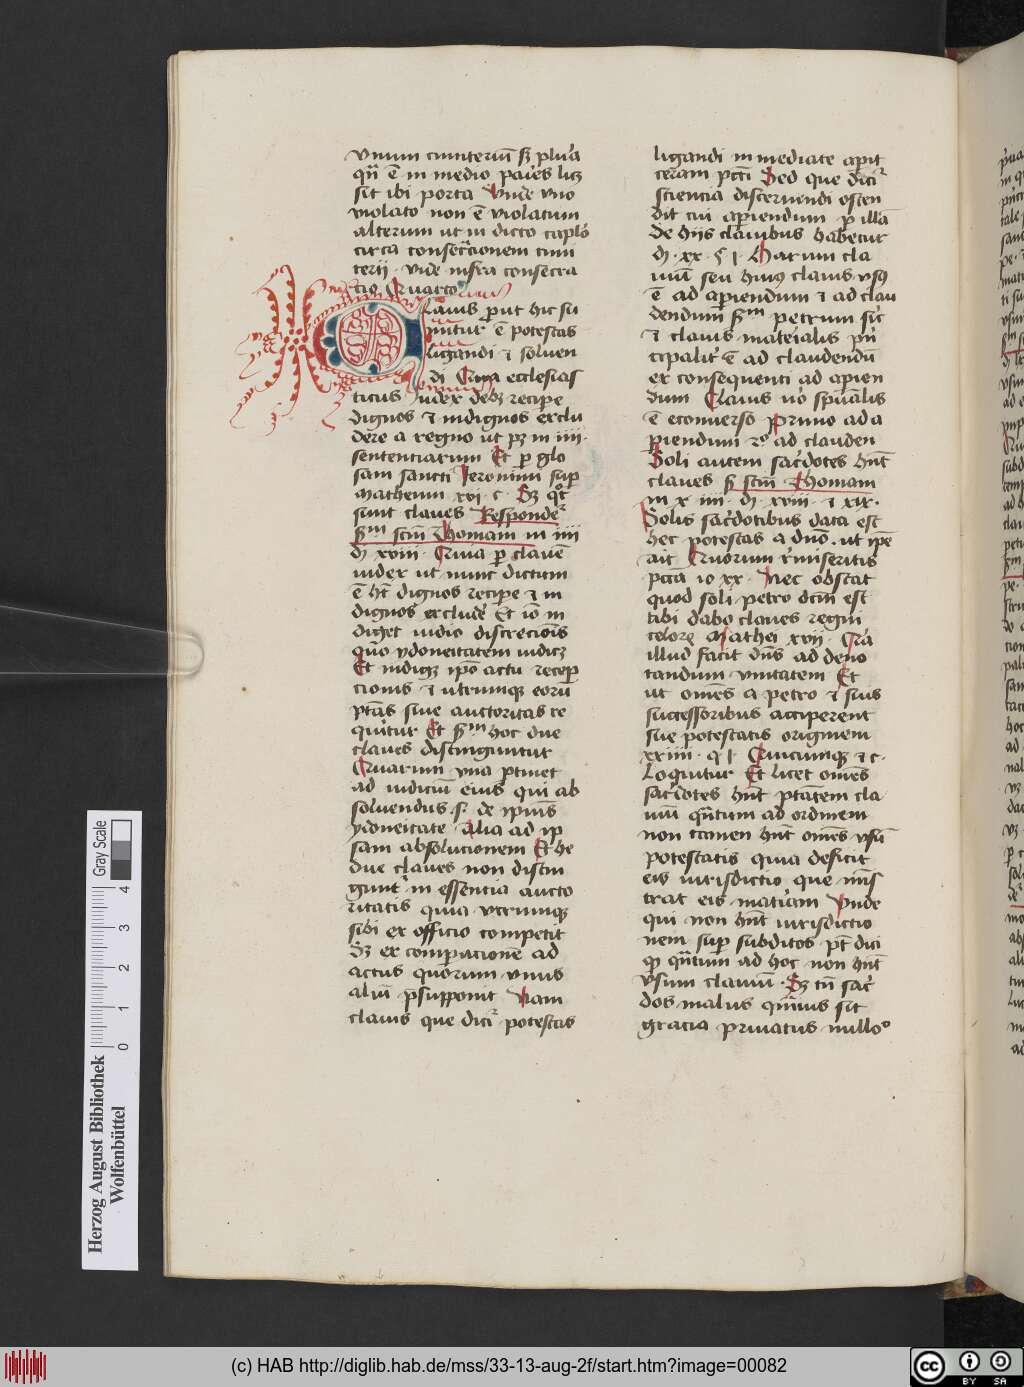 vnum cimiteriū sꝫ plura
qn̄ ē in medio paries licꝫ
sit ibi porta Vnde vno
violato non ē violatum
alterum ut in dicto caplo
circa consecr̄cionem cimi
terij · vide infra consecra
cio Quarto
Clauis prout hic su
mitur ē potestas
ligandi ⁊ soluen
di Qua ecclesias
ticus iudex debꝫ recipe
dignos ⁊ indignos exclu
dere a regno ut pꝫ in iiij ·
sentenciarum Et p glo
sam sancti Jeronimi sup
Matheum xvi · c · Sꝫ qͦt
sunt claues Respondet᷑
sᵐ scm̄ Thomam in iiij
di · xviii · Quia p clauē
iudex ut nunc dictum
ē hꝫ dignos recipe ⁊ in
dignos excludē Et iō in
diget iudicio discrecionis
quo ydoneitatem iudicꝫ
Et indigꝫ ipō actu recep
cionis ⁊ utriusqꝫ eorū
ptās siue auctoritas re
quiritur Et sᵐ hoc due
claues distinguntur
Quarum vna ptinet
ad iudiciū eius qui ab
soluendus · s · de ipius
ydoneitate Alia ad ip
sam absolucionem Et he
due claues non distin
gunt᷑ in essentia aucto
ritatis quia vtrumqꝫ
sibi ex officio competit
Sꝫ ex comparacionē ad
actus quorum vnus
aliū psupponit Nam
clauis que dicit᷑ potestas
ligandi inmediate apit
ceram pcti Sed que dicit᷑
sciencia discernendi osten
dit cui apiendum p illā
de hijs clauibus habetur
di · xx · § i · Harum cla
uiū seu huius clauis vsus
ē ad aperiendum ⁊ ad clau
dendum sᵐ petrum sic
⁊ clauis materialis prin
cipalit᷑ ē ad claudendū
ex consequenti ad apien
dum Clauis vo spualis
ē econuerso Primo ad a
piendum 2ᵒ ad clauden
Soli autem sacdotes hn̄t
claues sꝫ scm̄ Thomam
in x iiij · di · xviii · ⁊ xix ·
Solis sacdotibus data est
hec potestas a dno · ut ipe
ait Quorum r̄miseritis
pctā io xx · Nec obstat
quod soli petro dcm̄ est
tibi dabo claues regni
celorꝫ Mathei xvij · Qia
illud facit dns ad deno
tandum vnitatem Et
ut omes a petro ⁊ suis
successoribus acciperent
sue potestatis originem
xxiiii · q i · Quicumqꝫ ⁊ c ·
Loquitur Et licet omes
sacdotes hn̄t ptātem cla
uiū qntum ad ordinem
non tamen hn̄t omes vsū
potestatis quia deficit
eis iurisdictio que mis
trat eis matiam Vnde
qui non hn̄t iurisdictio
nem sup subditos pt dici
qͦ qntum ad hoc non hn̄t
vsum clauiū · Sꝫ tn̄ sac
dos malus quis sit
gracia priuatus nullo
Herzog August Bibliothek
Wolfenbüttel
0 1 2 3 4
Gray Scale
(c) HAB http://diglib.hab.de/mss/33-13-aug-2f/start.htm?image=00082
cc BY SA